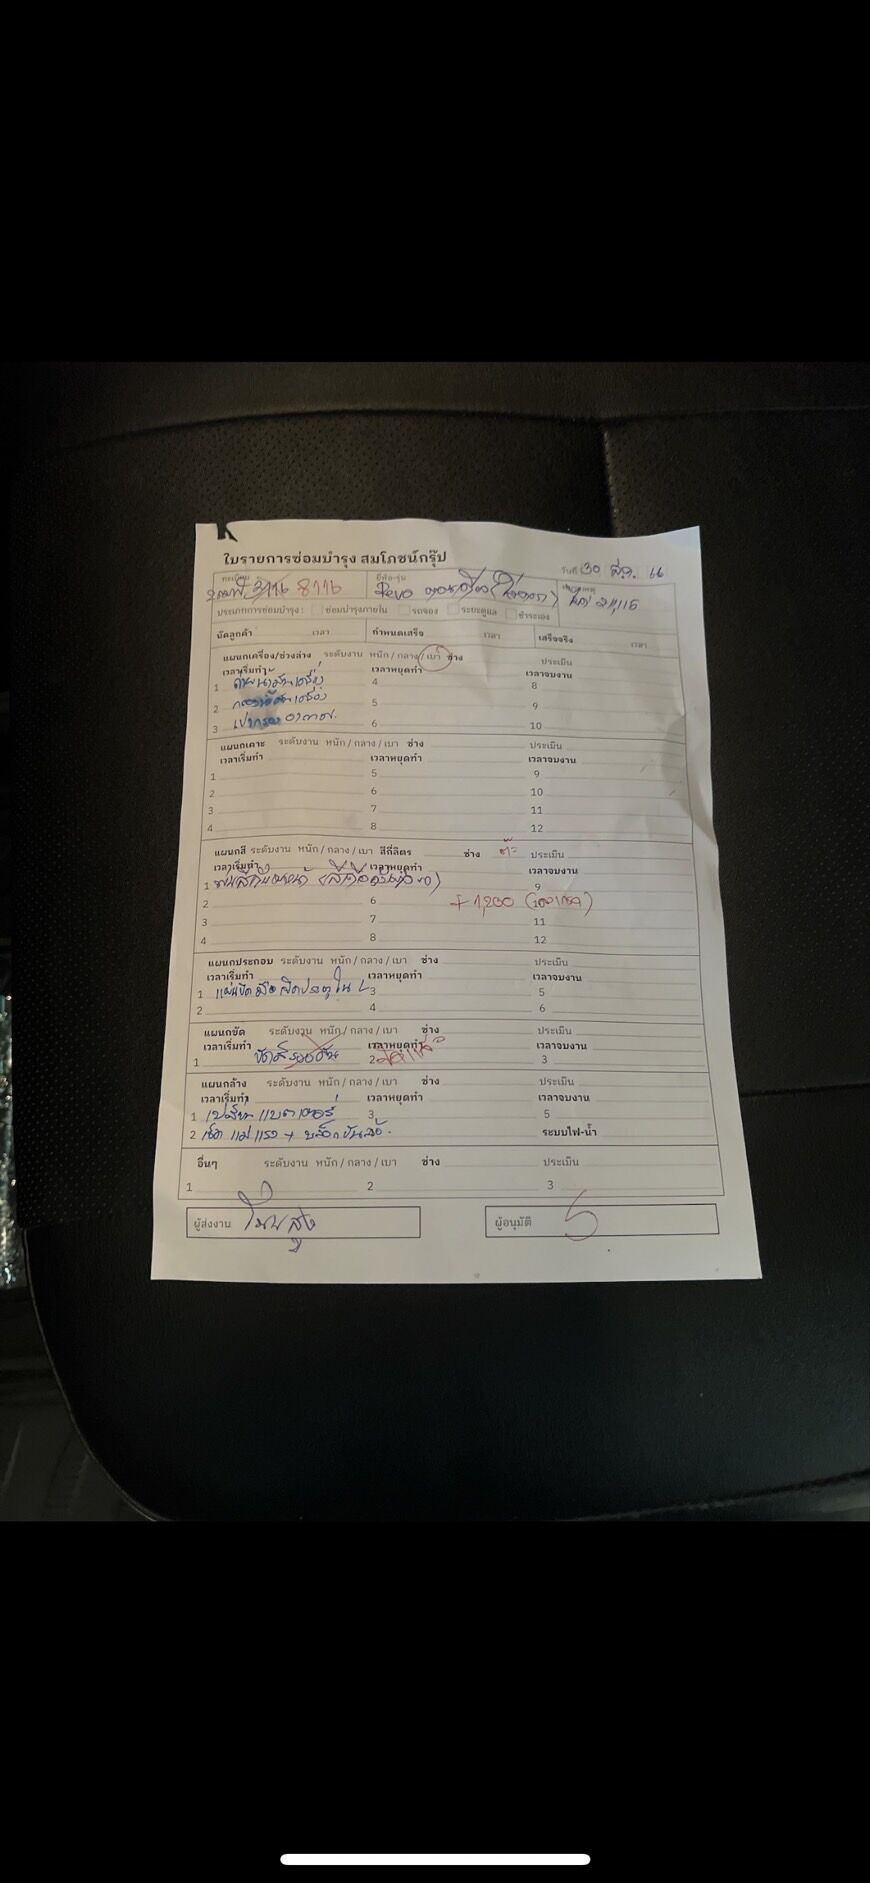 ใบรายการซ่อมบำรุง สมโภชน์กรุ๊ป
วันที่ 30 ส.ค. 66
ทะเบียน 8116 ยี่ห้อ-รุ่น Revo
ประเภทการซ่อมบำรุง : ซ่อมบำรุงภายใน รถจอง ระยะดูแล ชำระเอง
นัดลูกค้า เวลา กำหนดเสร็จ เวลา เสร็จจริง เวลา
แผนกเครื่อง/ช่วงล่าง ระดับงาน หนัก / กลาง / เบา ช่าง ประเมิน
เวลาเริ่มทำ เวลาหยุดทำ เวลาจบงาน
1 ถ่ายน้ำมันเครื่อง 4 8
2 กรองน้ำมันเครื่อง 5 9
3 เป่ากรองอากาศ 6 10
แผนกเคาะ ระดับงาน หนัก / กลาง / เบา ช่าง ประเมิน
เวลาเริ่มทำ เวลาหยุดทำ เวลาจบงาน
1 5 9
2 6 10
3 7 11
4 8 12
แผนกสี ระดับงาน หนัก / กลาง / เบา สีกี่ลิตร ช่าง ประเมิน
เวลาเริ่มทำ เวลาหยุดทำ เวลาจบงาน
1 พ่นสีกันชนหน้า 9
2 6 +1,200
3 7 11
4 8 12
แผนกประกอบ ระดับงาน หนัก / กลาง / เบา ช่าง ประเมิน
เวลาเริ่มทำ เวลาหยุดทำ เวลาจบงาน
1 3 5
2 4 6
แผนกขัด ระดับงาน หนัก / กลาง / เบา ช่าง ประเมิน
เวลาเริ่มทำ เวลาหยุดทำ เวลาจบงาน
1 ขัดสีรอบคัน 2 3
แผนกล้าง ระดับงาน หนัก / กลาง / เบา ช่าง ประเมิน
เวลาเริ่มทำ เวลาหยุดทำ เวลาจบงาน
1 เปลี่ยนแบตเตอรี่ 3 5
2 ระบบไฟ-น้ำ
อื่นๆ ระดับงาน หนัก / กลาง / เบา ช่าง ประเมิน
1 2 3
ผู้ส่งงาน ผู้อนุมัติ